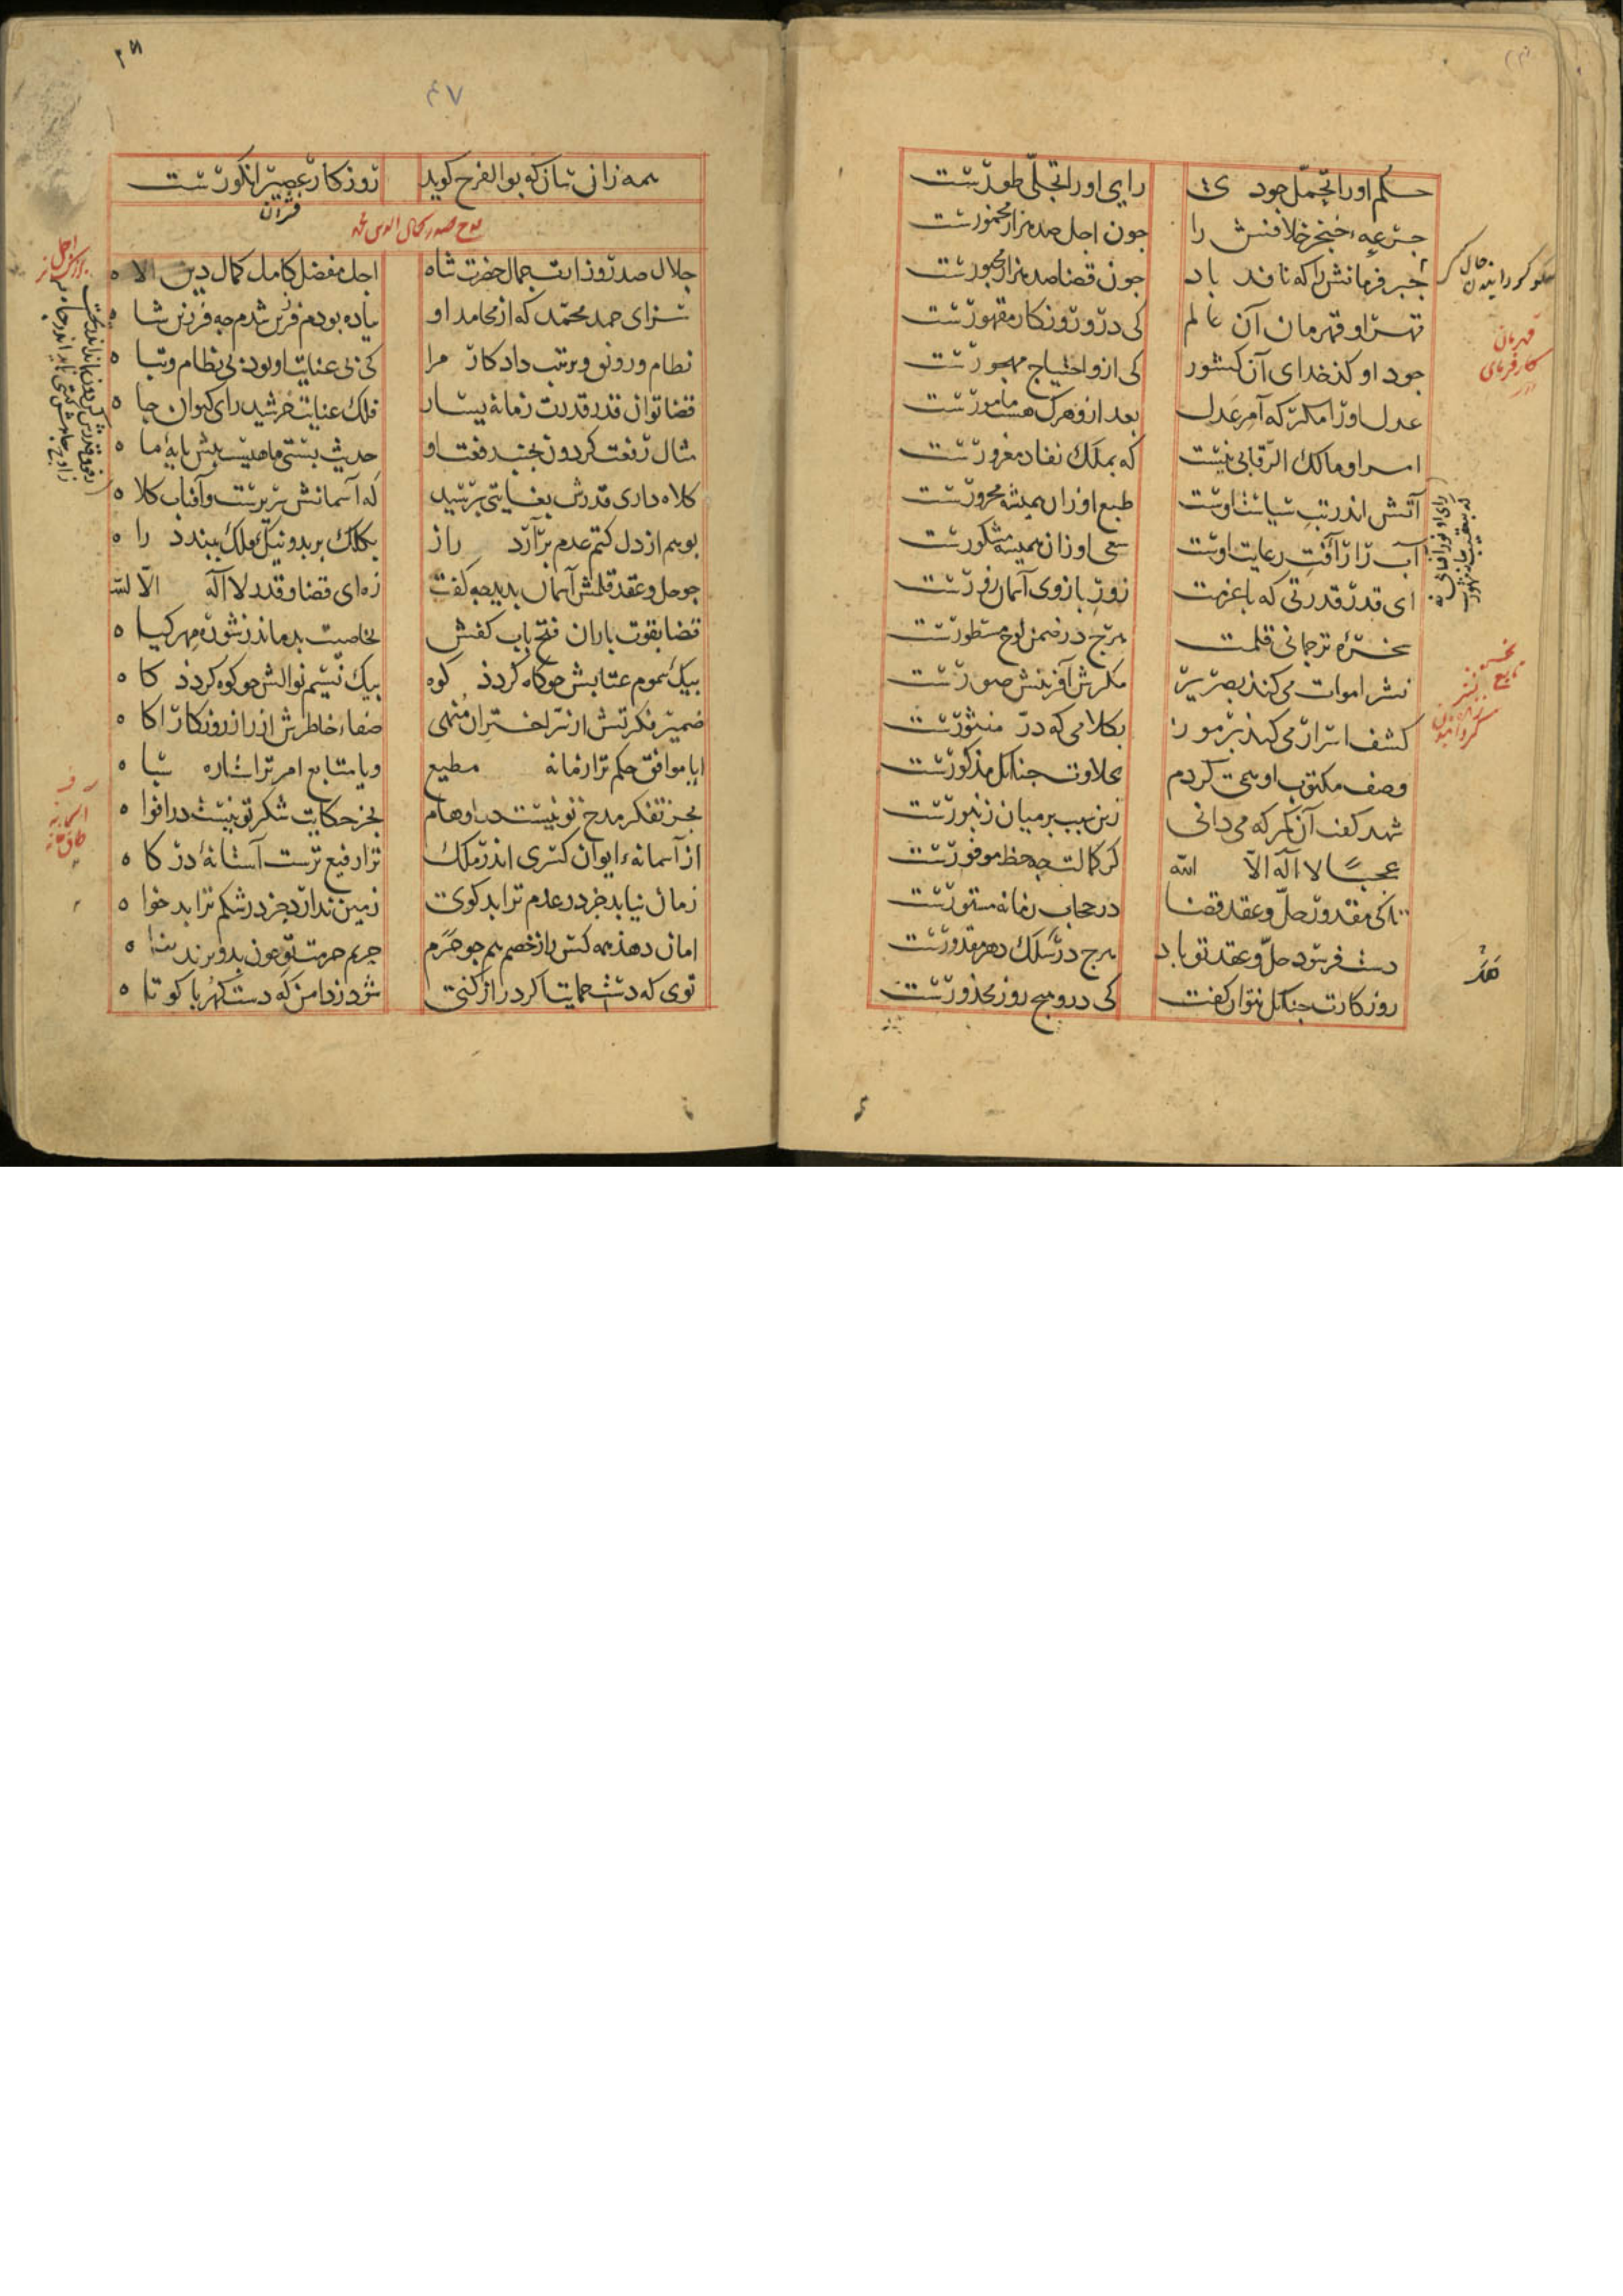 حکم او را تحمل جودی رای او را تجلی طورست
جرعه خنجر خلافش را جون اجل صد هزار مخمورست
جبر فرمانش را که نافذ باد جون قضا صد هزار مجبورست
قهر او قهرمان آن عالم کی درو روزکار مقهورست
جود او کدخدای آن کشور کی ازو احتیاج مهجورست
عدل او را مکر که آمر عدل بعد ازو هرک هست مامورست
امر او مالک الرقابی نیست که بملک نفاد مغرورست
آتش اندر تب سیاست اوست طبع او زان همیشه محرورست
آب را زآفت رعایت اوست سعی او زان همیشه مشکورست
ای قدر قدرتی که با عزمت زور بازوی آسمان زورست
سخره ترجمانی قلمت هرج در ضمن لوح مسطورست
نشر اموات می کند بصریر مکرش آفرینش صورست
کشف اسرار می کند برموز بکلامی که در منثورست
وصف مکتوب او همی کردم بحلاوت جنانک مذکورست
شهد کفت آن کمر که می دانی زین سبب بر میان زنبورست
عجبا لا اله الا الله کز کمالت جه حظ موفورست
تا کی مقدور حل و عقد قضا در حجاب زمانه مستورست
دست فرسود حل و عقد تو باد هرج در سلک دهر مقدورست
روزکارت جنانک نتوان کفت کی درو هیج روز محذورست
قهرمان
کارفرمای
۴۷
همه زان سان که بوالفرج کوید روزکار عصیر انکورست
جلال صدر وزارت جمال حضرت شاه اجل مفضل کامل کمال دین الاه
سزای حمد محمد که از محامد او بیاده بودم فرزین شدم جه فرزین شاه
نظام و رونق و ترتیب داد کار مرا کی بی عنایت او بود بی نظام و تباه
قضا توان قدر قدرت زمانه یسار فلک عنایت خرشید رای کیوان جاه
مثال رفعت کردون بجنب رفعت او حدیث بستی ماهیست بیش بایه ماه
کلاه داری قدرش بغایتی برسید که آسمانش سریرست و آفتاب کلاه
بوهم از دل کتم عدم برآرد راز بکلک بر بد و نیک فلک ببندد راه
جو حل و عقد قلمش آسمان بدید جه کفت زه ای قضا و قدر لا اله الا الله
قضا بقوت باران فتح باب کفش بخاصیت بدماند ز شوره مهر کیاه
بیک سموم عتابش جو کاه کردذ کوه بیک نسیم نوالش جو کوه کردذ کاه
ضمیر فکرتش از سر اختران منهی صفاء خاطرش از راز روزکار آکاه
ایا موافق حکم ترا زمانه مطیع و یا متابع امر ترا ستاره سباه
بجز تفکر مدح تو نیست در اوهام بجز حکایت شکر تو نیست در افواه
از آسمانه ایوان کسری اندر ملک ترا رفیع ترست آستانه درکاه
زمان نیابد جز در عدم ترا بدکوی زمین ندارد جز در شکم ترا بدخواه
امان دهذ همه کس را ز خصم هم جو حرم حریم حرمت تو جون بدو برند بناه
توی که دست حمایت اکر دراز کنی شود ز دامن که دست کهربا کوتاه